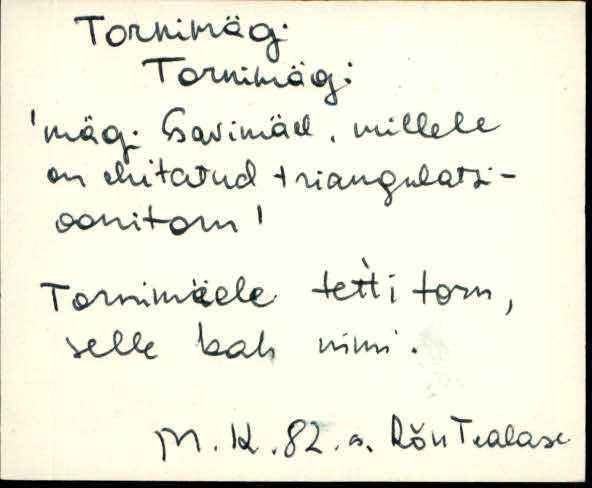 Tornimägi
Tornimägi
'mägi Savimäel, millele
on ehitatud triangulatsi-
oonitorn'
Tornimäele tetti torn,
selle kah nimi.
M. K. 82. a. Rõn Tealase